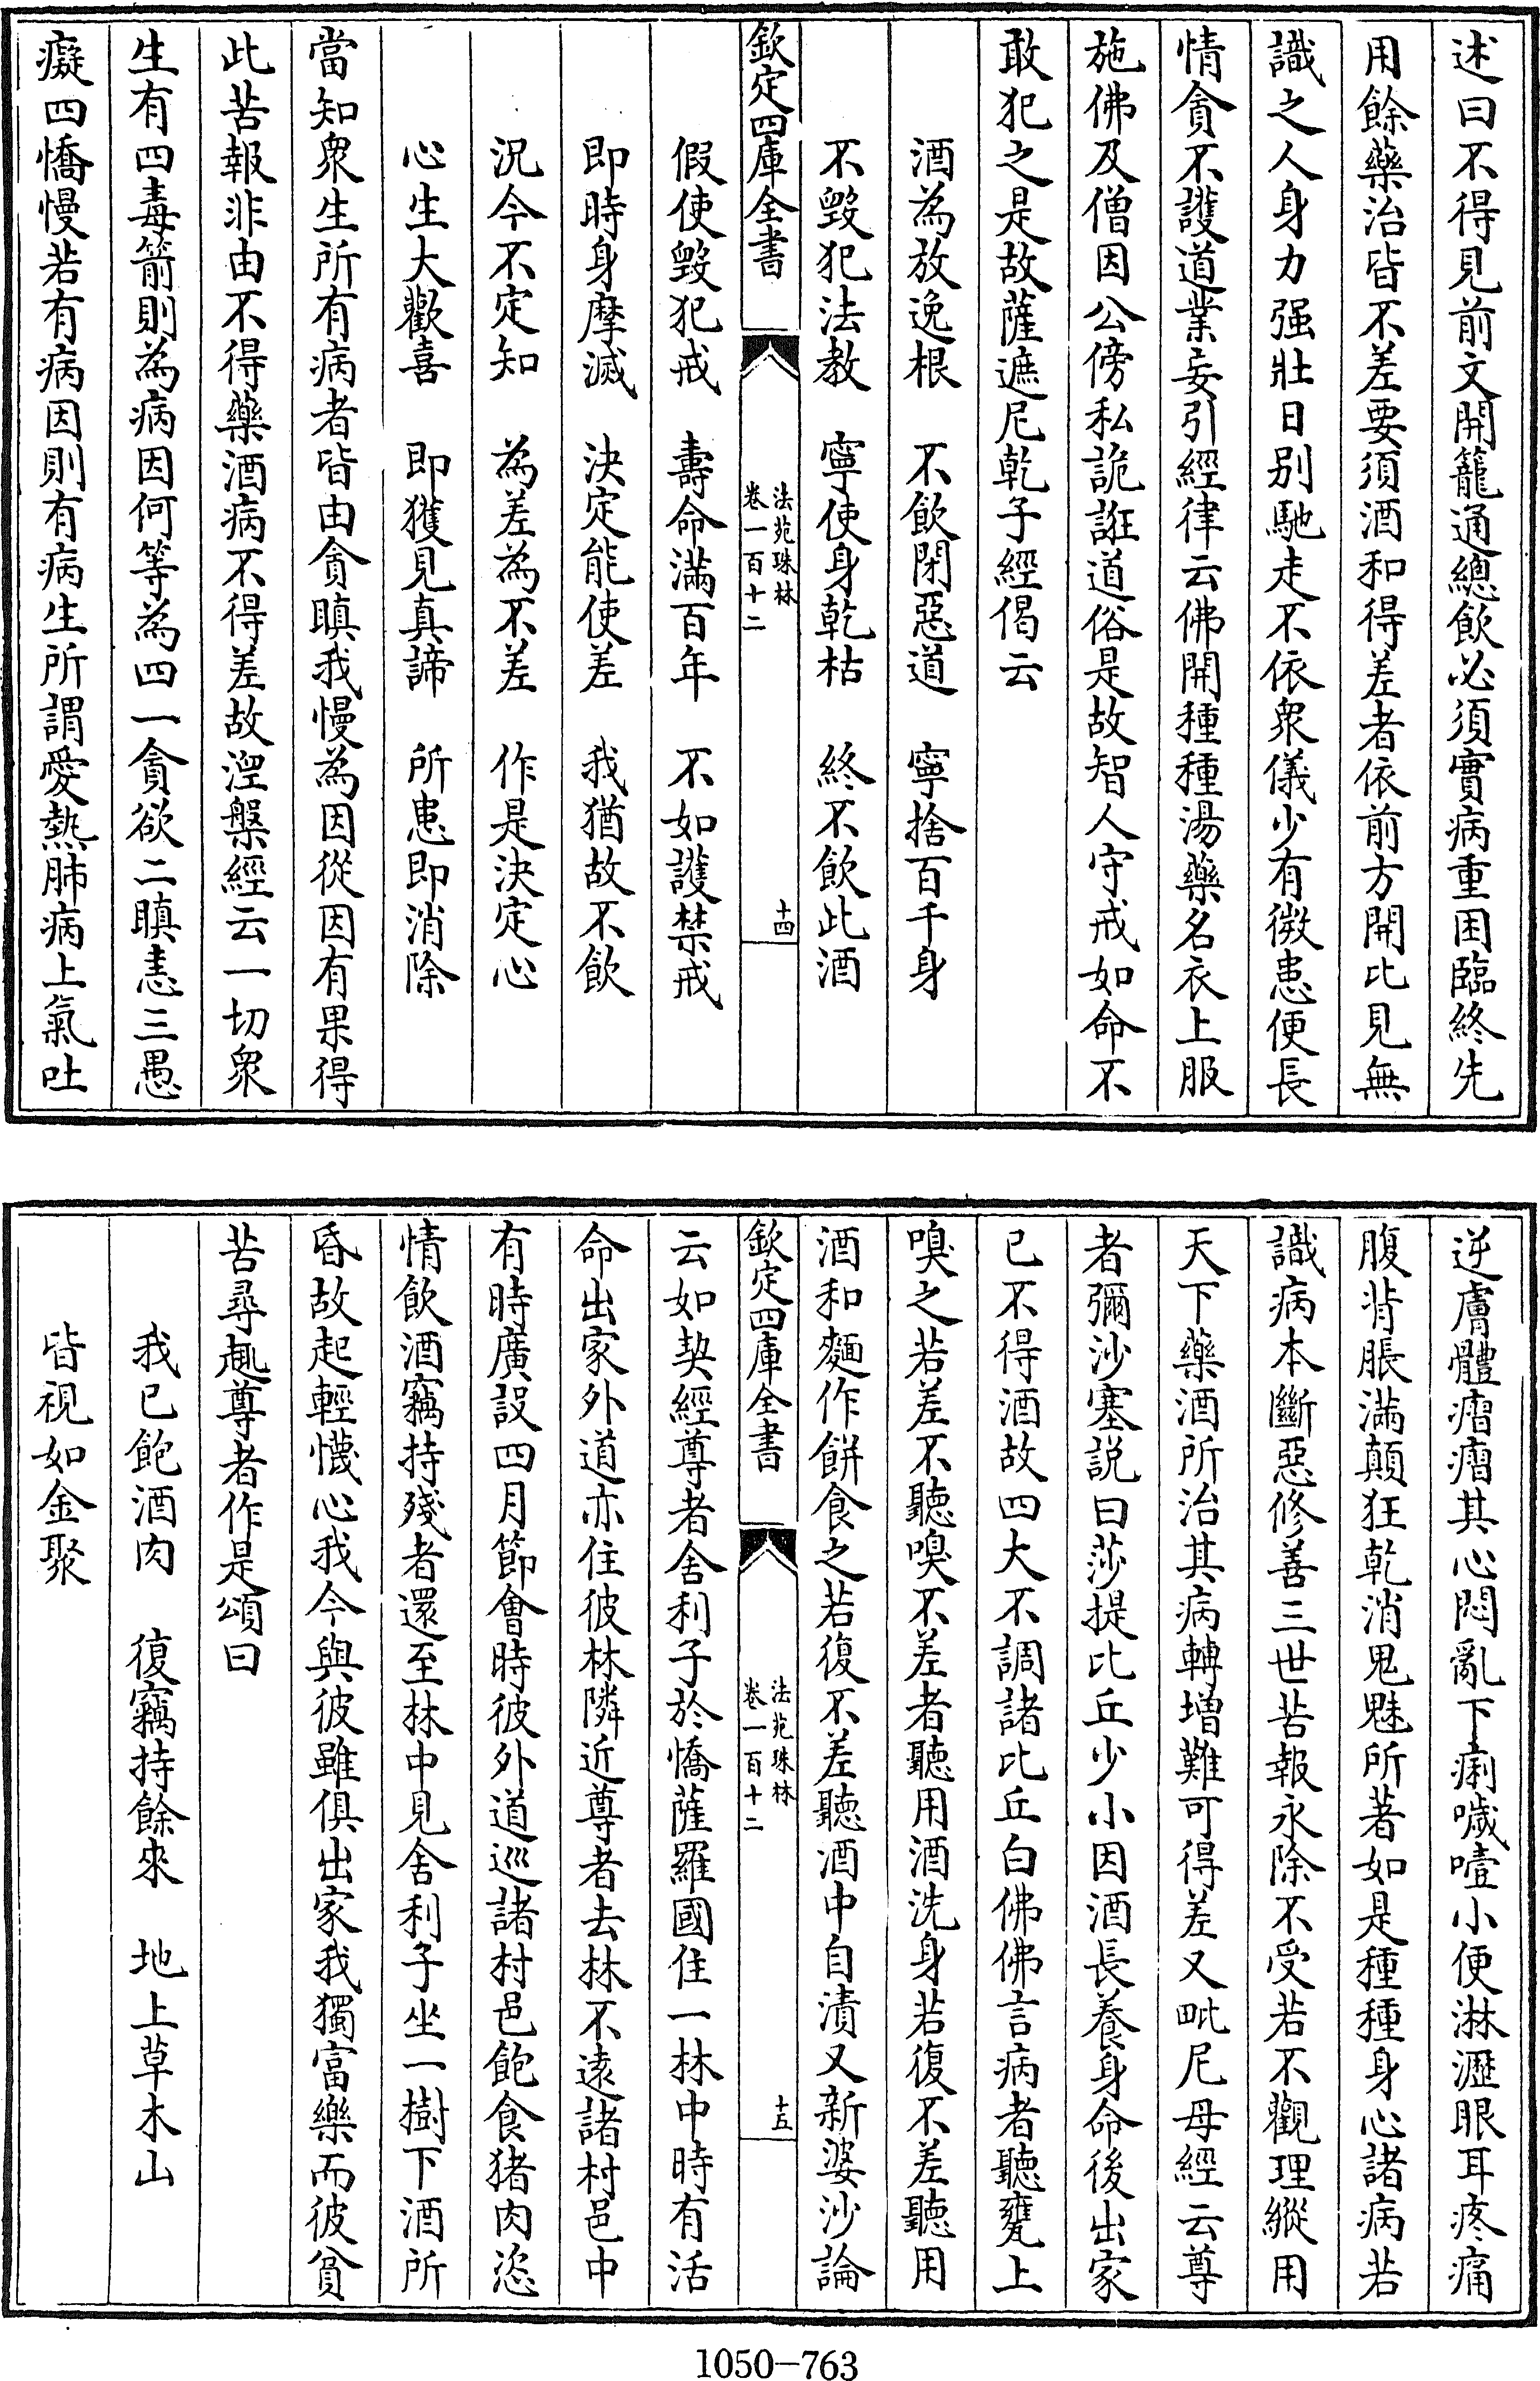 述曰不得見前文開籠通總飲必須實病重困臨終先
用餘藥治皆不差要須酒和得差者依前方開比見無
識之人身力强壯日别馳走不依衆儀少有微患便長
情貪不護道業妄引經律云佛開種種湯藥名衣上服
施佛及僧因公傍私詭誑道俗是故智人守戒如命不
敢犯之是故薩遮尼乾子經偈云
酒為放逸根　不飲閉惡道　寧捨百千身
不毀犯法教　寧使身乾枯　終不飲此酒
欽定四庫全書　法苑珠林　卷一百十二　十四
假使毀犯戒　壽命滿百年　不如護禁戒
即時身摩滅　決定能使差　我猶故不飲
況今不定知　為差為不差　作是決定心
心生大歡喜　即獲見真諦　所患即消除
當知衆生所有病者皆由貪瞋我慢為因從因有果得
此苦報非由不得藥酒病不得差故涅槃經云一切衆
生有四毒箭則為病因何等為四一貪欲二瞋恚三愚
癡四憍慢若有病因則有病生所謂愛熱肺病上氣吐
逆膚體瘡瘡其心悶亂下痢噦噎小便淋瀝眼耳疼痛
腹背脹滿顛狂乾消鬼魅所著如是種種身心諸病若
識病本斷惡修善三世苦報永除不受若不觀理縱用
天下藥酒所治其病轉增難可得差又毗尼母經云尊
者彌沙塞說曰莎提比丘少小因酒長養身命後出家
已不得酒故四大不調諸比丘白佛佛言病者聽甕上
嗅之若差不聽嗅不差者聽用酒洗身若復不差聽用
酒和麵作餅食之若復不差聽酒中自漬又新婆沙論
欽定四庫全書　法苑珠林　卷一百十二　十五
云如契經尊者舍利子於憍薩羅國住一林中時有活
命出家外道亦住彼林隣近尊者去林不遠諸村邑中
有時廣設四月節會時彼外道巡諸村邑飽食猪肉恣
情飲酒竊持殘者還至林中見舍利子坐一樹下酒所
昏故起輕懱心我今與彼雖俱出家我獨富樂而彼貧
苦尋趣尊者作是頌曰
我已飽酒肉　復竊持餘來　地上草木山
皆視如金聚
1050-763